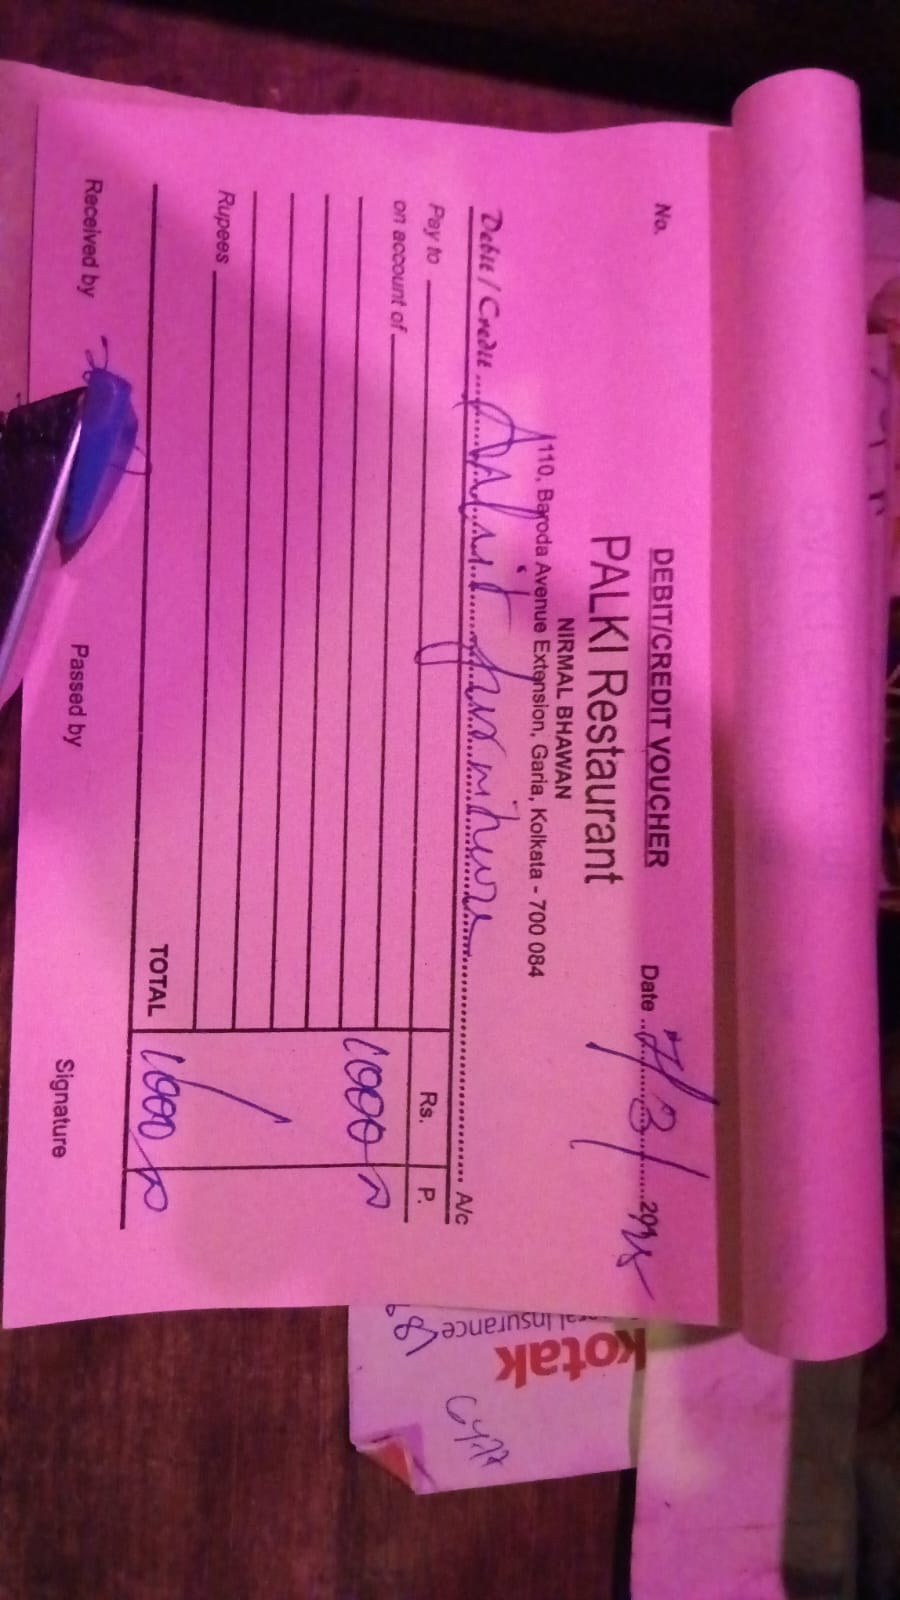 DEBIT/CREDIT VOUCHER
No.
Date 7/3/
PALKI Restaurant
NIRMAL BHAWAN
110, Baroda Avenue Extension, Garia, Kolkata - 700 084
Debit / Credit A/c
Pay to Rs. P.
on account of
1000
Rupees
TOTAL 1000
Received by Passed by Signature
kotak
Insurance